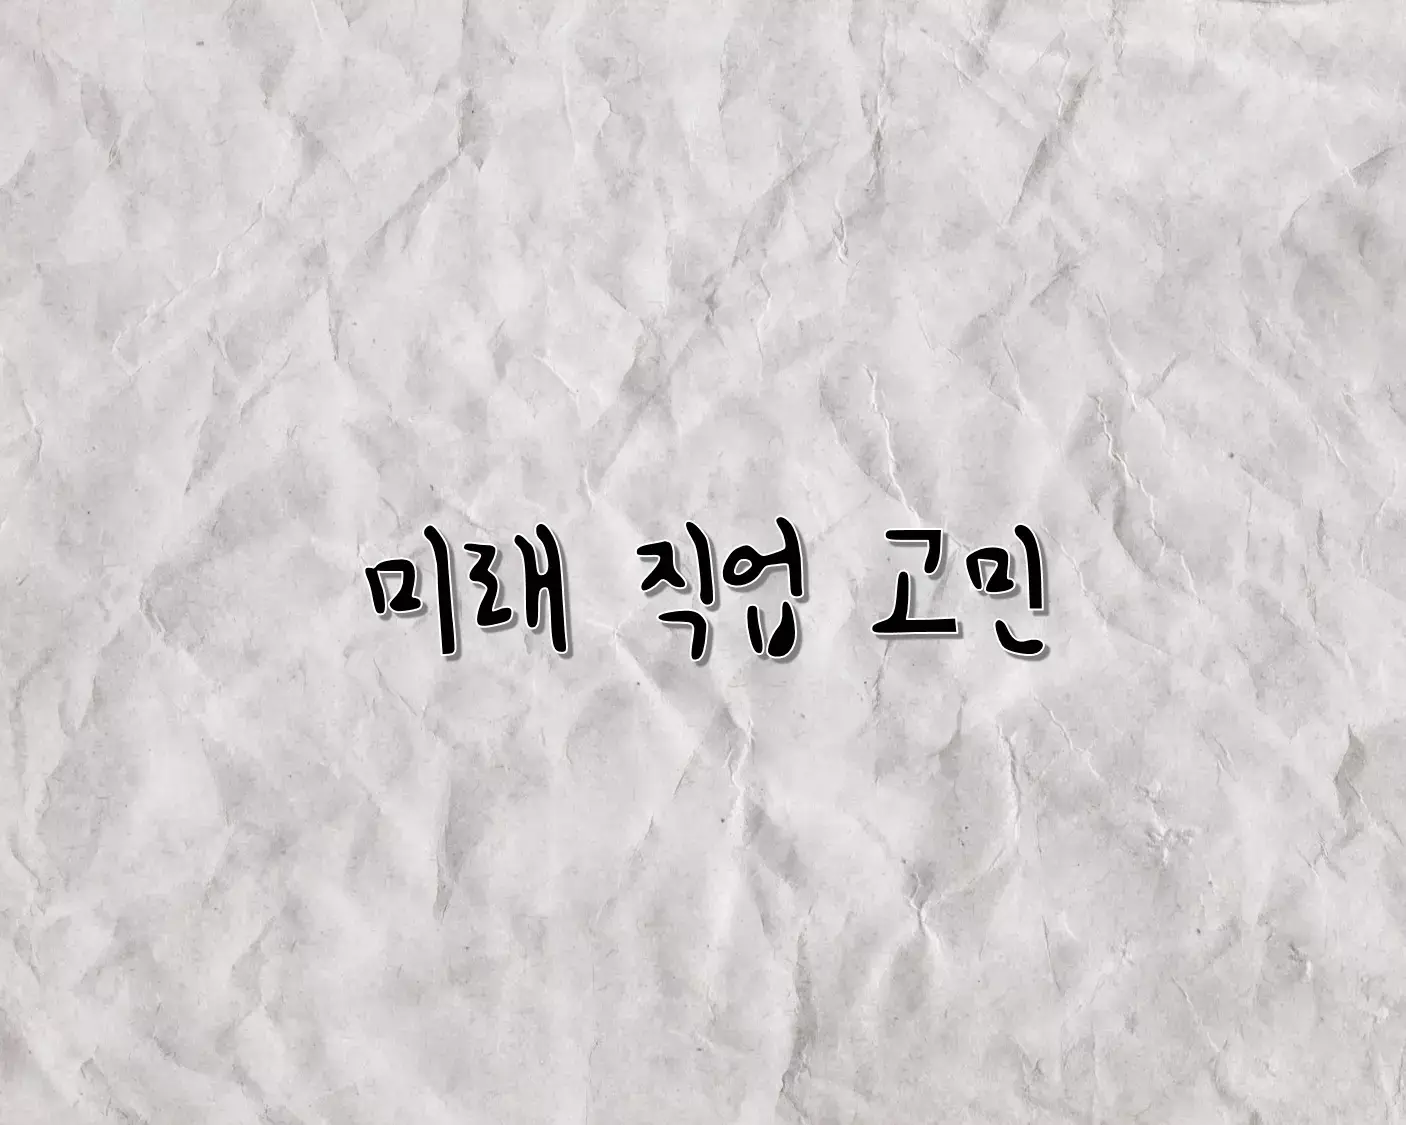 미래 직업 고민